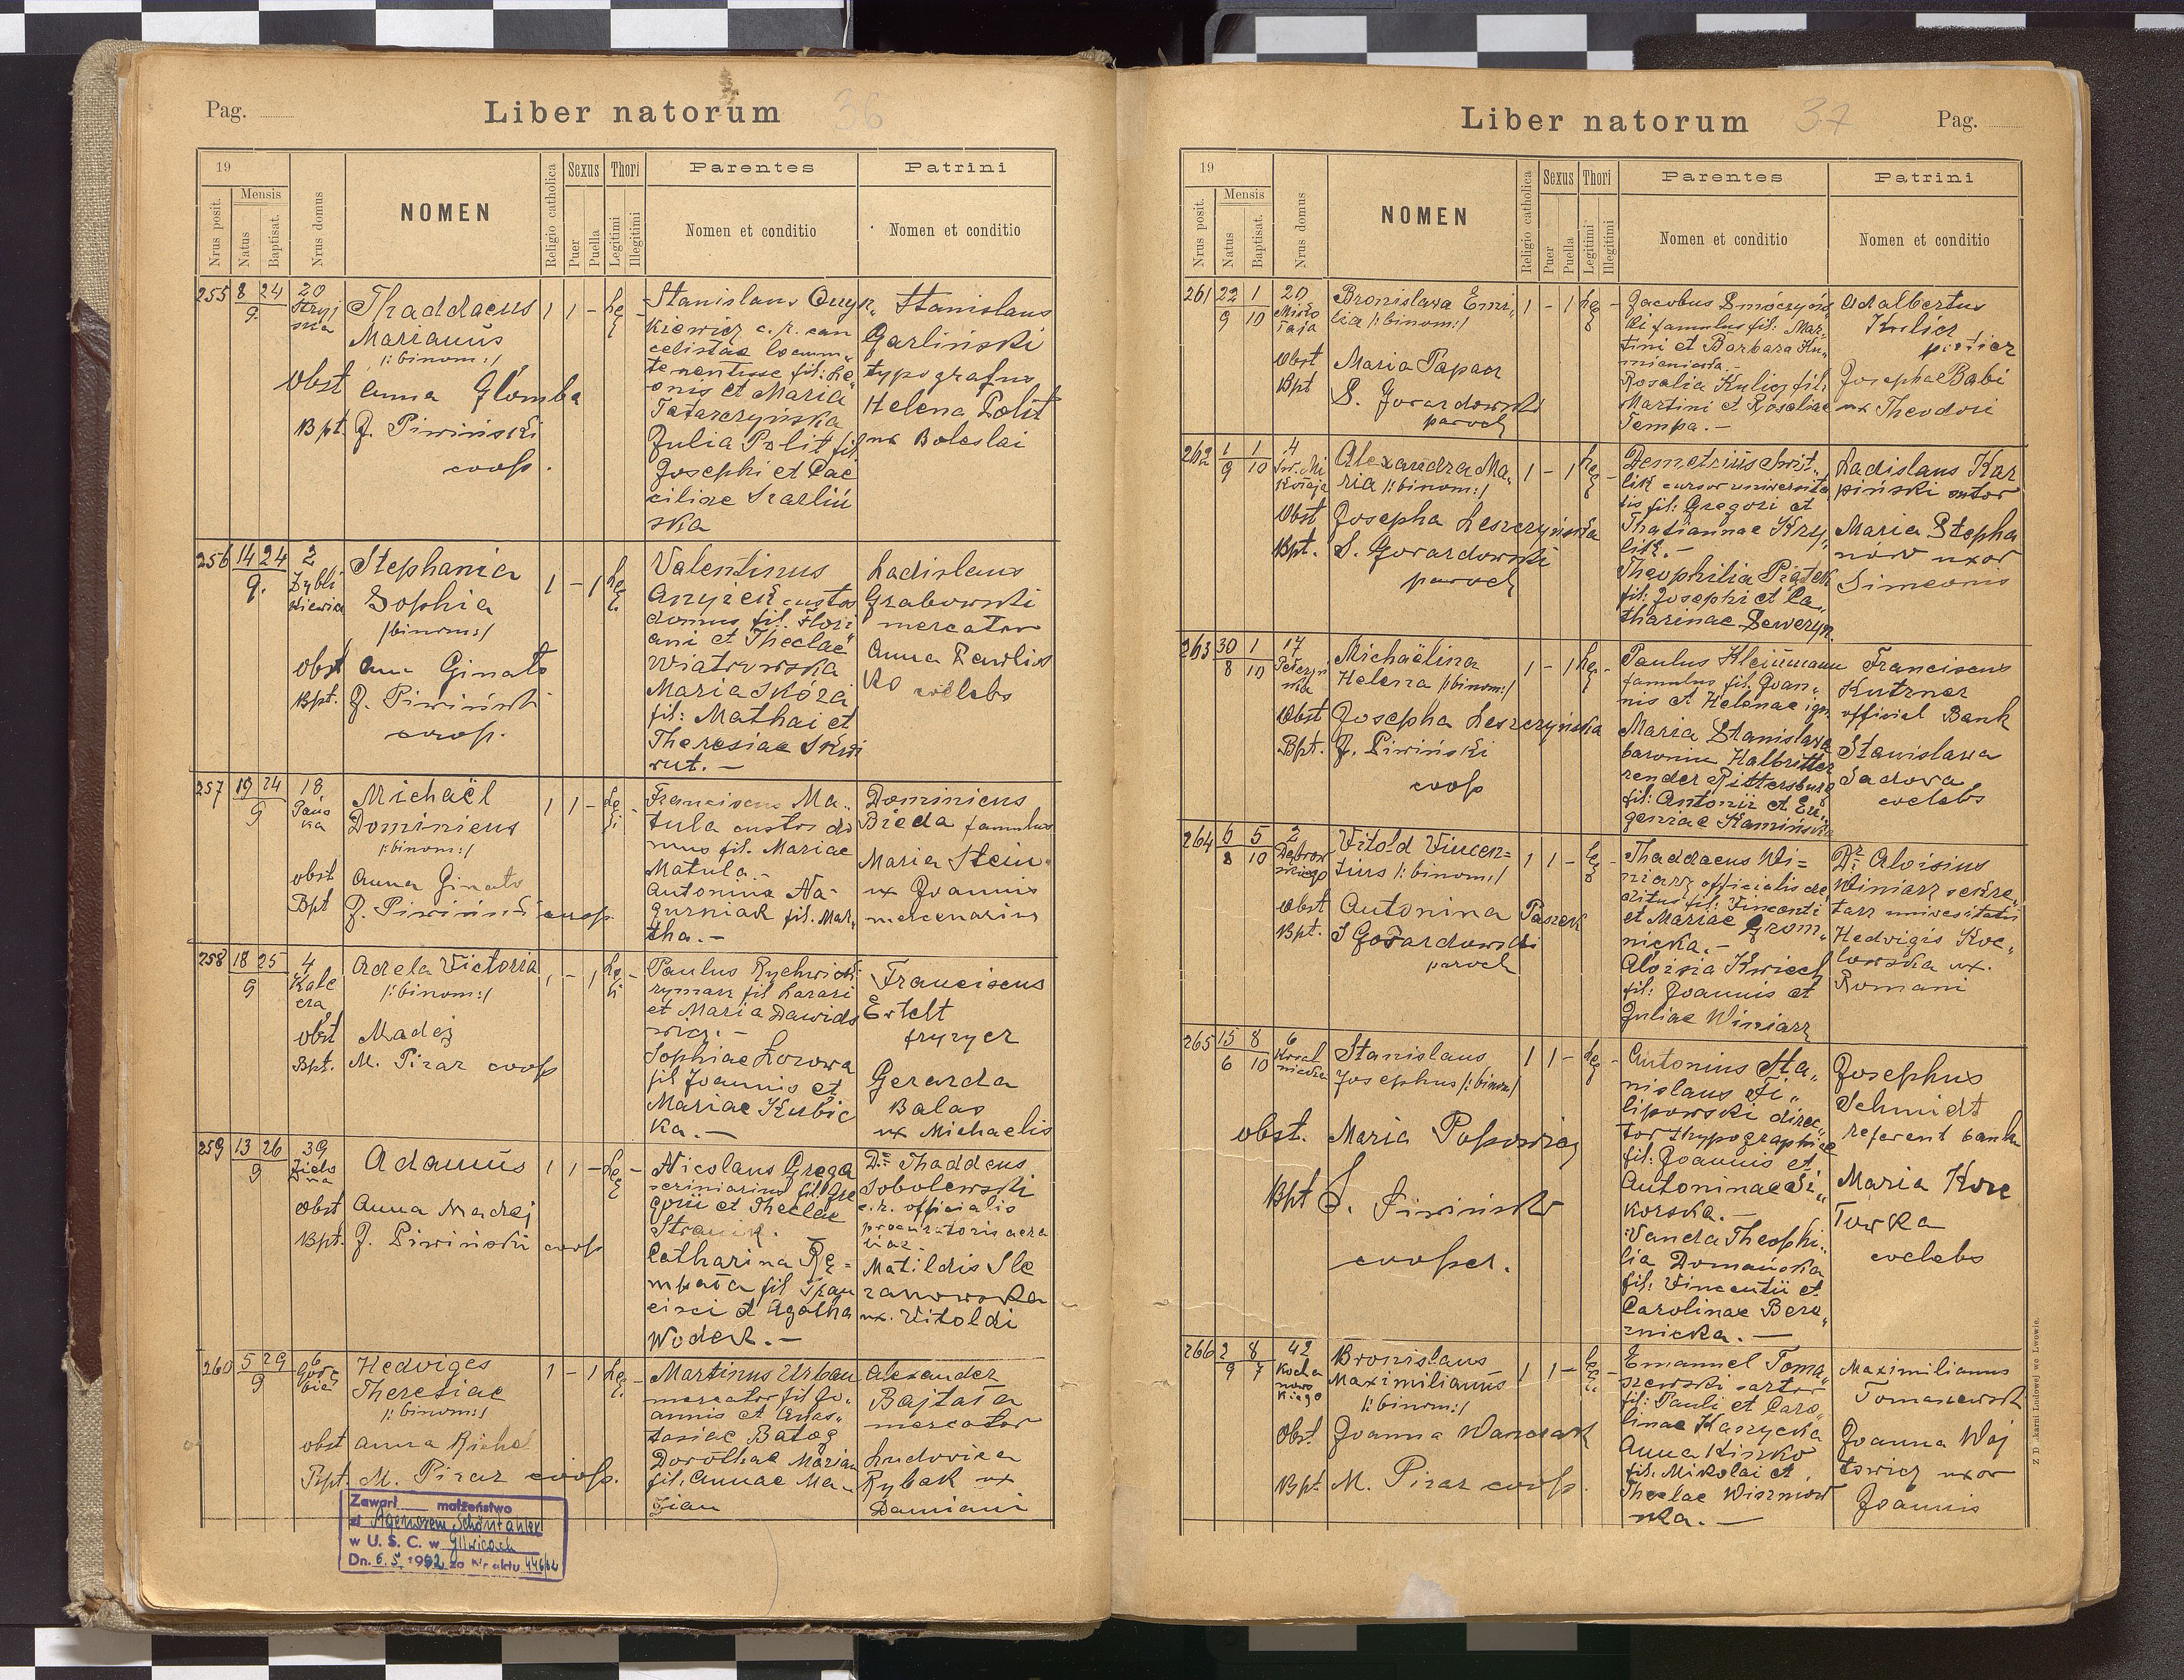 Pag.
Liber natorum 36
19
Mensis
Nrus posit.
Natus
Baptisat.
Nrus domus
NOMEN
Religio catholica
Sexus
Puer
Puella
Thori
Legitimi
Illegitimi
Parentes
Nomen et conditio
Patrini
Nomen et conditio
255 8 24
9.
20
Thaddaeus
Marianus
/:binom:/
1 1 -
obst Anna Głomba
Bpt. J. Piwiński
coop.
Stanislaus
kiewicz c. r. can
cellistae locum„
tenentisse fil: Le„
onis et Maria
Tatarczyńska
Julia Polit fil
Josephi et Cae
ciliae Szarliń
ska
Stanislaus
Garliński
typografus
Helena Polit
ux Boleslai
256 14 24
9.
2
Zybli
kiewicza
Stephania
Sophia
/binom:/
1 - 1
obst Ginats
Bpt. J. Piwiński
coop.
Valentinus
custos
domus fil. Flori
ani et Theclae
Wiatrowska
Maria Skóra
fil: Mathai et
Theresiae Skwi
rut. —
Ladislaus
Grabowski
mercator
Anna Pawlis
ko coelebs
257 19 24
9
18
Michaël
Dominicus
/:binom:/
1 1 -
obst Anna Ginats
Bpt J. Piwiński coop.
Franciscus Ma„
tula custos do
mus fil. Mariae
Matula.-
Antonina Na-
gurniak fil. Mar„
tha. —
Dominicus
Bieda famulus
Maria Stein
ux Joannis
mercenarius
258 18 25
9
4
Kale
cza
Adela Victoria
/:binom:/
1 - 1
obst Madej
Bpt. M. Pirar coop
Paulus Rychwicki
rymarz fil Lazari
et Maria Dawido
wicz. -
Sophiae Lorowa
fil Joannis et
Mariae Kubic
ka. —
Franciscus
Ertelt
fryzyer
Gerarda
Balas
ux Michaelis
259 13 26
9
39
Zielo
na
Adamus
1 1 -
obst Anna Madej
Bpt. J. Piwiński coop
Nicolaus Grega
scriniarius fil Gre
gorii et Theclae
Catharina Rę=
mpała fil Fran
cisci et Agatha
Wodek. —
Dr Thaddeus
Sobolewski
c. r. officialis
procuratoris aera
riae -
Matildis Sle
zanowska
ux. Vitoldi
260 5 29
9
6
Hedviges
Theresiae
/:binom:/
1 - 1
obst Anna
Bpt. M. Pirar coop.
Martinus Urban
mercator fil Jo„
annis et Anas„
tasiae Batog
Dorothae Marian
fil. Annae Ma„
Alexander
Bajtała
mercator
Ludovica
Rybak ux
Damiani
Zawarł małżeństwo
z Agenorem Schöntaler
w U. S. C. w Gliwicach
Dn. 6. 5. 1962 za Nr aktu 446/62
Liber natorum 37
Pag.
19
Mensis
Nrus posit.
Natus
Baptisat.
Nrus domus
NOMEN
Religio catholica
Sexus
Puer
Puella
Thori
Legitimi
Illegitimi
Parentes
Nomen et conditio
Patrini
Nomen et conditio
261 22 1
9 10
20
Bronislava Emi„
lia /:binom:/
1 - 1
Obst Maria
Bpt S. Gorardowski
paroch
Jacobus Smoczyńs
ki famulus fil: Mar„
tini et Barbara Ku„
Rosalia Kulicz fil:
Martini et Rosaliae
Tempa. -
Adalbertus
Kulicz
Josepha Babi
ux Theodori
262 1 1
9 10
4
Św. Mi
kołaja
Alexandra Ma„
ria /:binom:/
1 - 1
Obst Josepha Leszczyńska
Bpt. S. Gorardowski
paroch
Demetrius
lik cursor universita
tis fil: Gregori et
Thatiannae Kry„
lik. -
Theophilia Piątek
fil: Josephi et Ca„
tharinae Seweryn
Ladislaus Kar
piński sutor
Maria Stepha
nów uxor
Simeonis
263 30 1
8 10
17
Michaëlina
Helena /:binom:/
1 - 1
Obst Josepha Leszczyńska
Bpt. J. Piwiński
coop
Paulus Kleinmann
famulus fil. Joan„
nis et Helenae ign.
Maria Stanislava
Halbritter
fil: Antonii et Eu„
geniae Kamińska
Franciscus
Kutzner
official Bank
Stanislawa
Sadowa
coelebs
264 6 5
8 10
2
Dąbrow
skiego
Vitold Vincen=
tius /:binom:/
1 1 -
Obst Antonina Paszek
Bpt. S Gorardowski
paroch
Thaddaeus Wi=
niarz officialis
fil: Vincenti
et Mariae Grom„
nicka. -
Aloisia Kwiech
fil: Joannis et
Juliae Winiarz
Dr. Aloisius
Winiarz sekre„
tarz universitatis
Hedvigis Koc„
lowska ux.
Romani
265 15 8
6 10
6
Stanislaus
Josephus /:binom/
1 1 -
obst. Maria Popowicz
Bpt S. Piwiński
cooper.
Antonius Sta„
nislaus Fi„
lipowski direc„
tor thypographiae
fil: Joannis et
Antoninae Si„
korska. -
Vanda Theophi„
lia Domańska
fil: Vincentii et
Carolinae Bere„
znicka. —
Josephus
Schmidt
referent bank
Maria
coelebs
266 2 8
9 7
42
Kocha
nows
kiego
Bronislaus
Maximilianus
/:binom:/
1 1 -
Obst. Joanna Wanczak
Bpt. M. Pirar coop.
Emanuel Toma„
szewski sartor
fil: Pauli et Caro„
linae Kaszycka
Anna Kiszko
fil. Mikolai et
Theclae Wiszniow
ska. —
Maximilianus
Tomaszewski
Joanna Woj
towicz uxor
Joannis